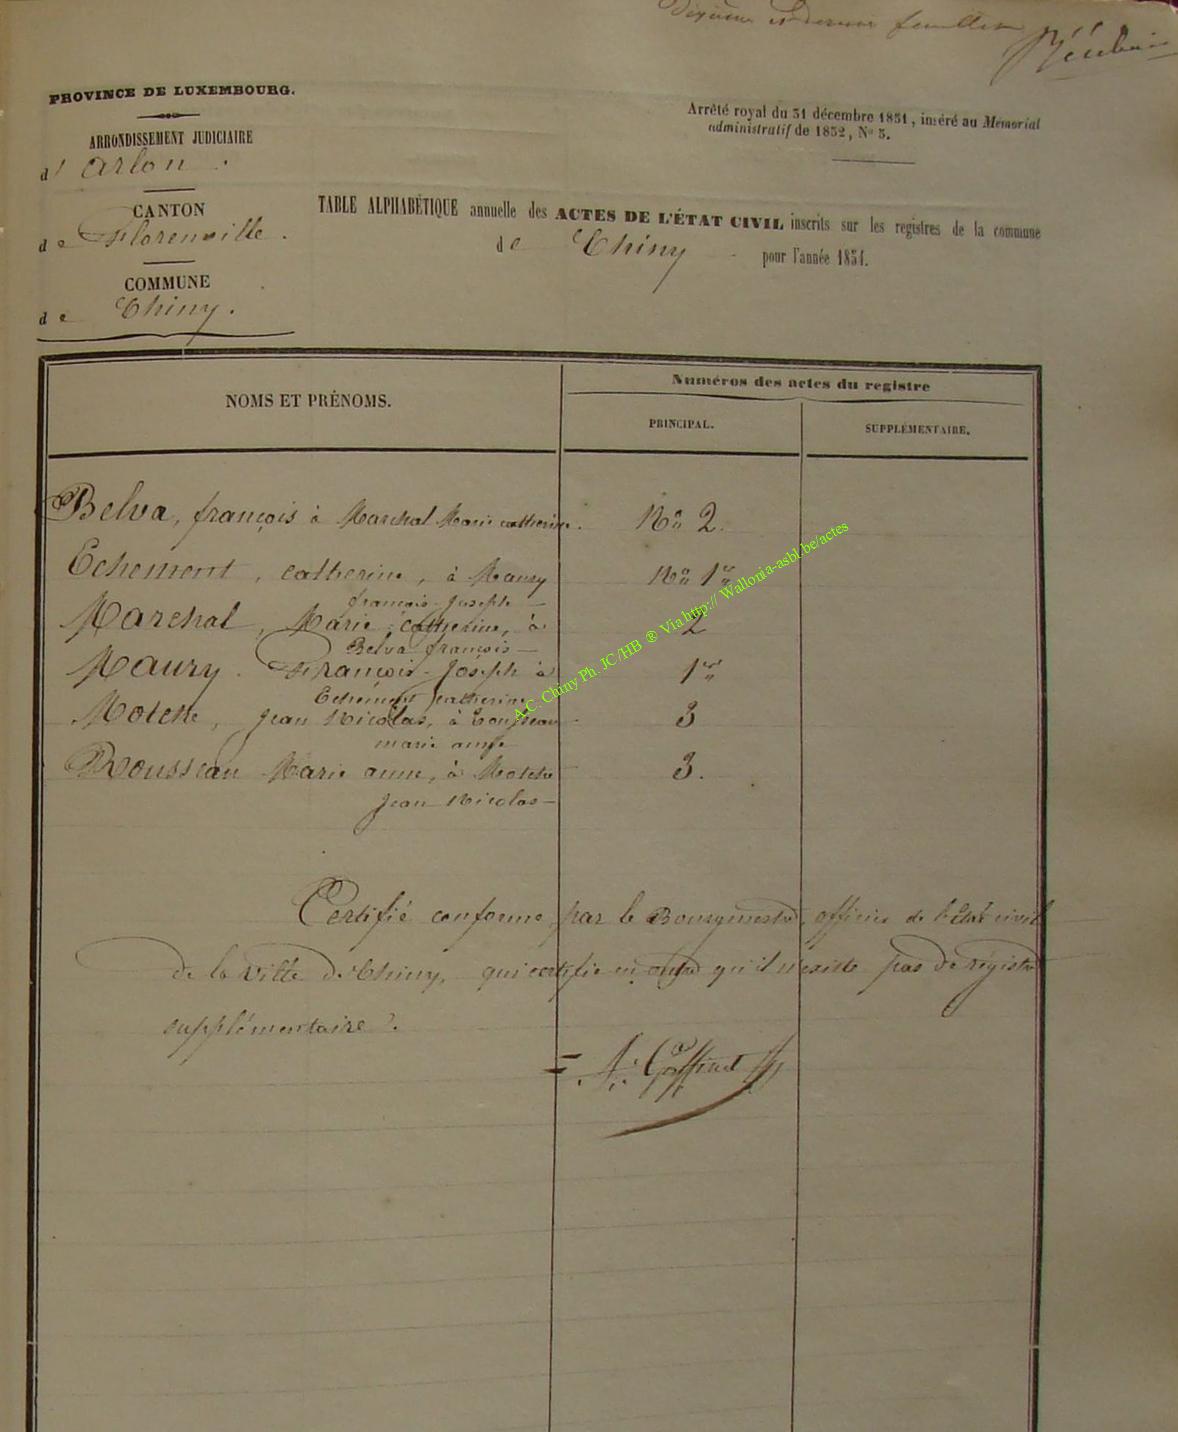 Dixième et dernier feuillet
PROVINCE DE LUXEMBOURG.
Arrêté royal du 31 décembre 1831, inséré au Mémorial
administratif de 1832, No 3.
ARRONDISSEMENT JUDICIAIRE
d' Arlon.
CANTON
de Florenville.
COMMUNE
de Chiny.
TABLE ALPHABÉTIQUE annuelle des ACTES DE L'ÉTAT CIVIL inscrits sur les registres de la commune
de Chiny pour l'année 1831.
NOMS ET PRÉNOMS.
Numéros des actes du registre
PRINCIPAL.
SUPPLÉMENTAIRE.
Belva, françois à Marchal Marie catherine. No 2.
Echement, catherine, à Maury No 1er
françois-Joseph
Marchal, Marie catherine, à 2
Belva françois
Maury. François-Joseph à 1er
Echement catherine
Motche, Jean Nicolas, à Rousseau 3
marie anne
Rousseau Marie anne, à Motche 3.
Jean Nicolas
Certifié conforme, par le Bourgmestre, officier de l'état civil
de la ville de Chiny, qui certifie en outre qu'il n'existe pas de régistre
supplémentaire.
A.C. Chiny Ph. JC/HB ® Via http:// Wallonia-asbl.be/actes